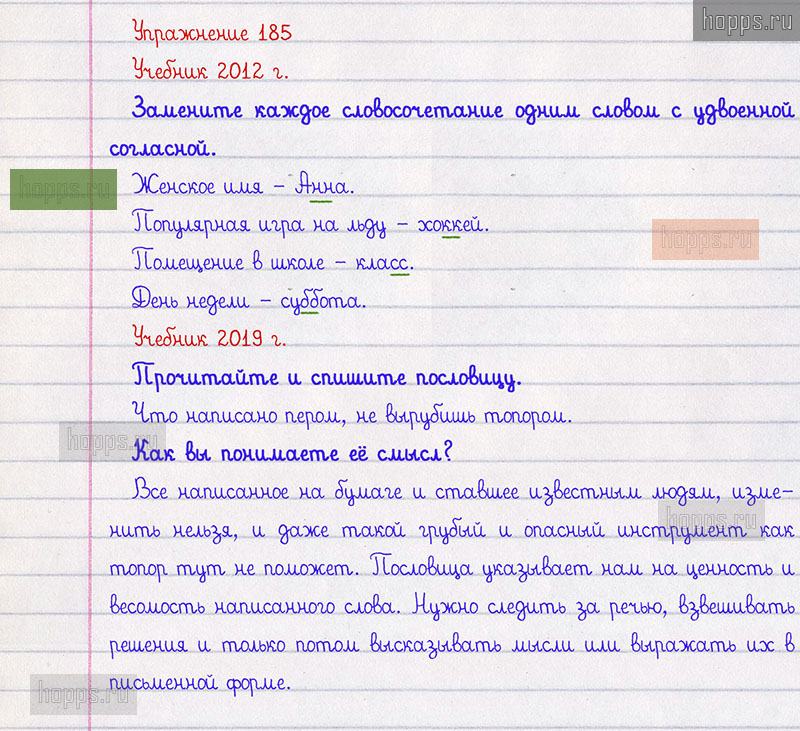 hopps.ru
Упражнение 185
Учебник 2012 г.
Замените каждое словосочетание одним словом с удвоенной
согласной.
hopps.ru
Женское имя – Анна.
Популярная игра на льду – хоккей.
hopps.ru
Помещение в школе – класс.
День недели – суббота.
Учебник 2019 г.
Прочитайте и спишите пословицу.
Что написано пером, не вырубишь топором.
hopps.ru
Как вы понимаете её смысл?
Все написанное на бумаге и ставшее известным людям, изме-
hopps.ru
нить нельзя, и даже такой грубый и опасный инструмент как
топор тут не поможет. Пословица указывает нам на ценность и
весомость написанного слова. Нужно следить за речью, взвешивать
решения и только потом высказывать мысли или выражать их в
письменной форме.
hopps.ru